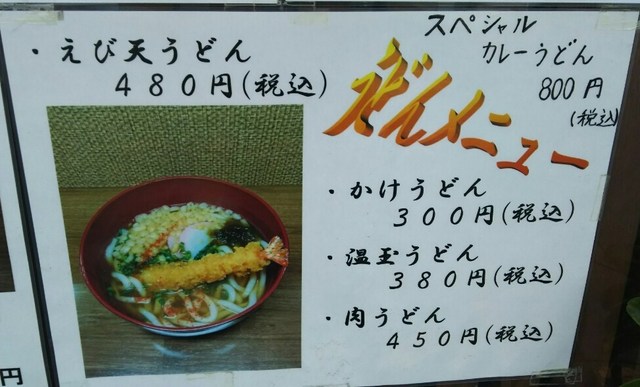 ・えび天うどん
４８０円(税込)
スペシャル
カレーうどん
800円
(税込)
ぎんメニュー
・かけうどん
３００円(税込)
・温玉うどん
３８０円(税込)
・肉うどん
４５０円(税込)
円